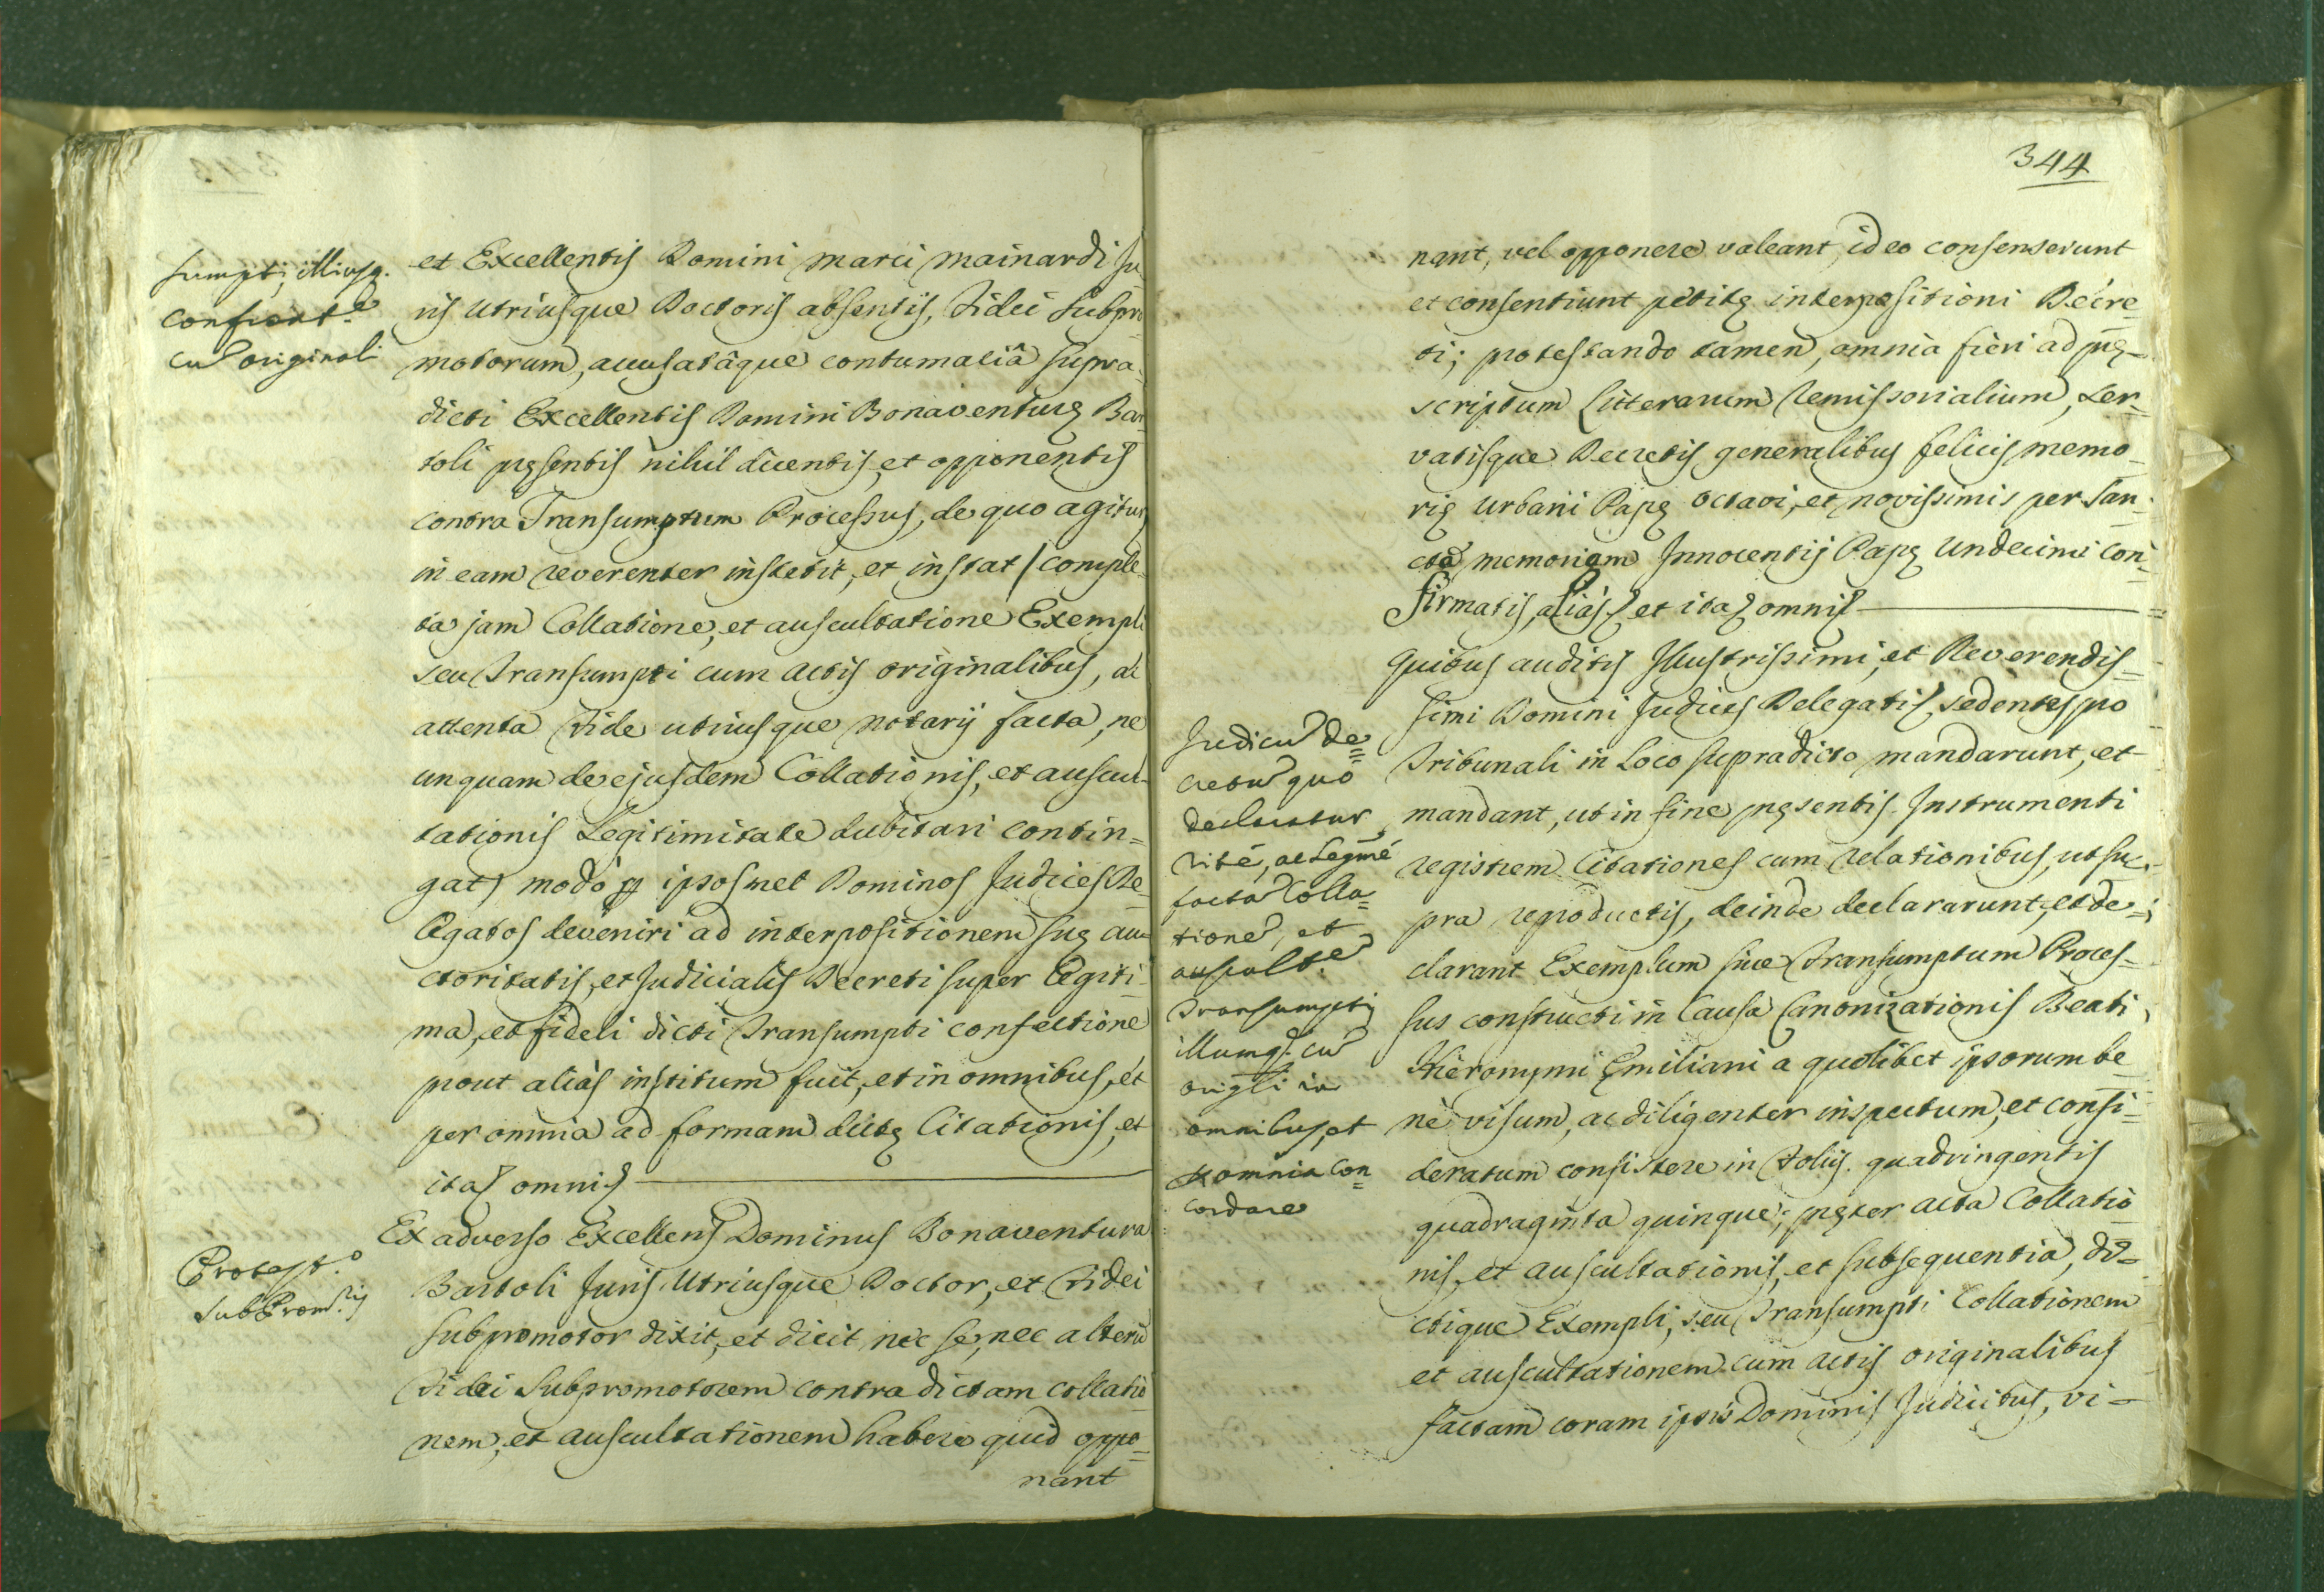 sumpti, illiusq.
confront.e
cũ originali
et Excellentis Domini Marci Mainardi Ju
ris Utriusque Doctoris absentis, Fidei Subpro
motorum, accusatâque contumaciâ supra-
dicti Excellentis Domini Bonaventurę Bar
toli pręsentis nihil dicentis, et opponentis
contra Transumptum Processus, de quo agitur
in eam reverenter institit, et instat / comple
ta jam Collatione, et auscultatione Exempli
seu Transumpti cum actis originalibus, ac
attenta Fide utriusque Notarij facta, ne
unquam de ejusdem Collationis, et auscul-
tationis Legitimitate dubitari contin=
gat) modò per ipsosmet Dominos Judices De=
legatos deveniri ad interpositionem suę au=
ctoritatis, et Judicialis Decreti super legiti=
ma, et fideli dicti Transumpti confectione
prout aliàs institum fuit, et in omnibus, et
per omnia ad formam dictę Citationis, et
ita omni
Protest.o
SubProm.ris
Ex adverso Excellens Dominus Bonaventura
Bartoli Juris Utriusque Doctor, et Fidei
Subpromotor dixit, et dicit, nec se, nec alterũ
Fidei Subpromotorem contra dictam collatio
nem, et auscultationem habere quid oppo=
nant
344
nant, vel opponere valeant, ideo consenserunt
et consentiunt petitę interpositioni Decre=
ti; protestando tamen, omnia fieri ad pręs-
scriptum Litterarum Remissorialium, ser=
vatisque Decretis generalibus felicis memo=
rię Urbani Papę Octavi, et novissimis per san=
ctã memoriam Innocentij Papę Undecimi con=
firmatis, aliàs et ita omni
Judicũ De=
cretũ quo
declaratur
ritè, ac legmè
factã Colla=
tionẽ, et
auscult.ẽ
Transumpti
illumq. cũ
origli in
omnibus, et
per omnia con=
cordare
Quibus auditis Illustrissimi, et Reverendis=
simi Domini Judices Delegati sedentes pro
Tribunali in Loco supradicto mandarunt, et
mandant, ut in fine pręsentis Instrumenti
registrem Citationes cum relationibus, ut su=
pra reproductis, deinde declararunt, et de=
clarant Exemplum sive Transumptum Proces=
sus constructi in Causa Canonizationis Beati
Hieronymi Ęmiliani a quolibet ipsorum be
nè visum, ac diligenter inspectum, et consi=
deratum consistere in Foliis quadringentis
quadraginta quinque; pręter acta Collatio
nis, et auscultationis, et subsequentia, di=
ctique Exempli, seu Transumpti Collationem
et auscultationem cum actis originalibus
factam coram ipsis Dominis Judicibus, vi=